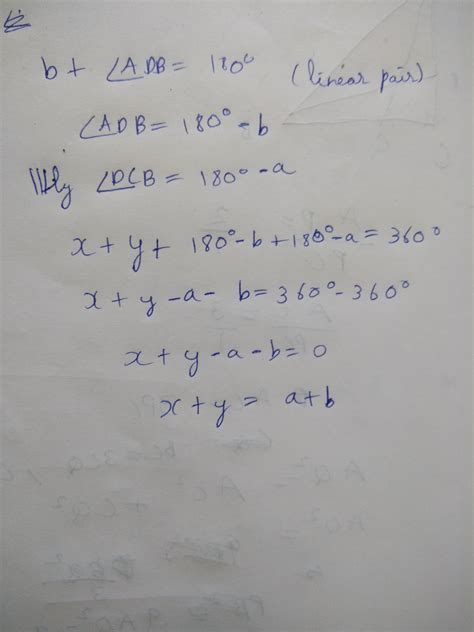 b + ∠ADB = 180° (linear pair)
∠ADB = 180° - b
|||ly ∠DCB = 180° - a
x + y + 180° - b + 180° - a = 360°
x + y - a - b = 360° - 360°
x + y - a - b = 0
x + y = a + b